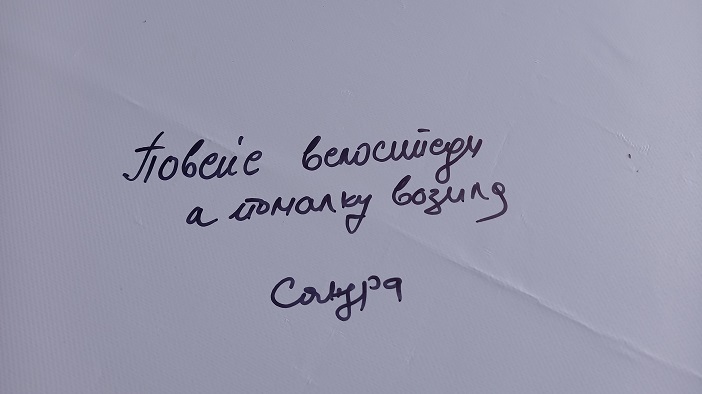 Повеќе велосипеди
а помалку возила
Сакура